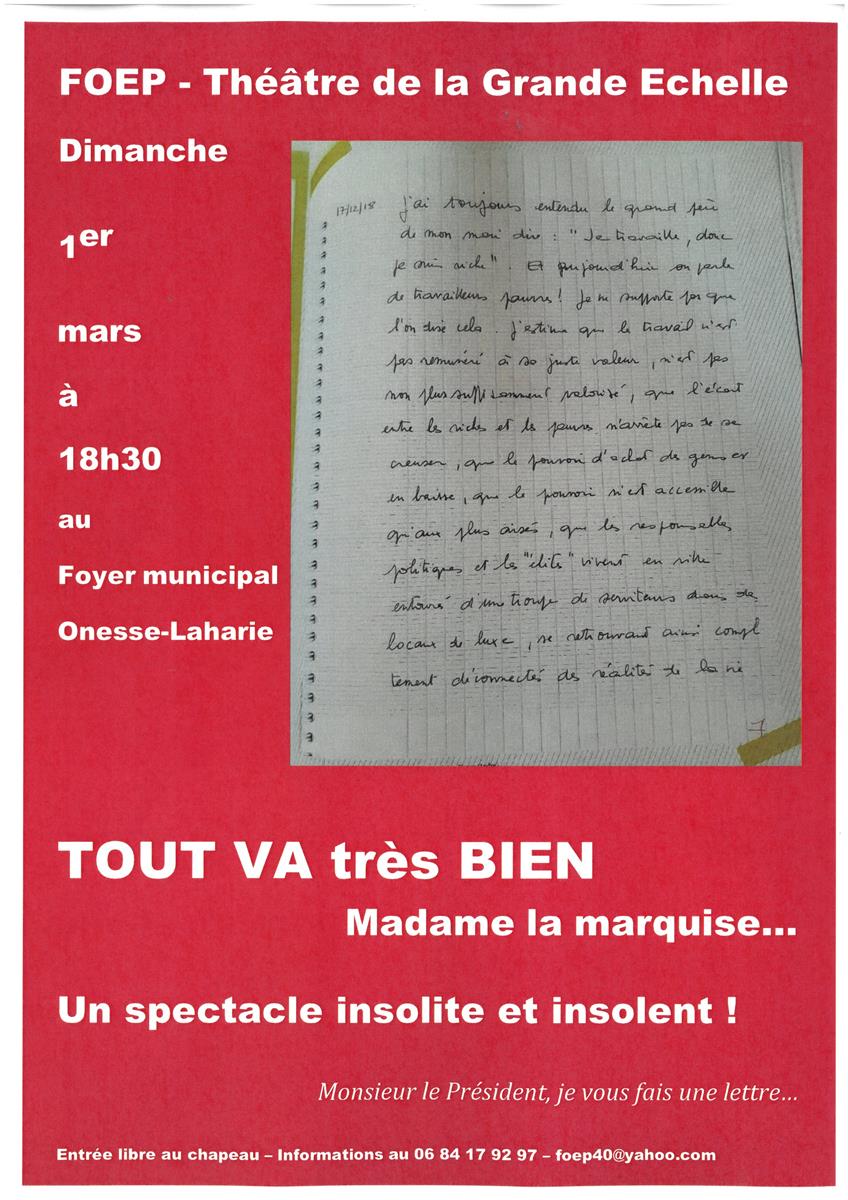 FOEP - Théâtre de la Grande Echelle
Dimanche
1er
mars
à
18h30
au
Foyer municipal
Onesse-Laharie
17/12/18
j'ai toujours entendu le grand père
de mon mari dire : "Je travaille, donc
je suis riche". Et aujourd'hui on parle
de travailleurs pauvres ! Je ne supporte pas que
l'on dise cela. J'estime que le travail n'est
pas remunéré à sa juste valeur, n'est pas
non plus suffisamment valorisé, que l'écart
entre les riches et les pauvres n'arrête pas de se
creuser, que le pouvoir d'achat des gens est
en baisse, que le pouvoir n'est accessible
qu'aux plus aisés, que les responsables
politiques et les "élites" vivent en ville
entourés d'une troupe de serviteurs dans des
locaux de luxe, se retrouvant ainsi compl
tement déconnectés des réalités de la vie
7
TOUT VA très BIEN
Madame la marquise...
Un spectacle insolite et insolent !
Monsieur le Président, je vous fais une lettre...
Entrée libre au chapeau – Informations au 06 84 17 92 97 – foep40@yahoo.com